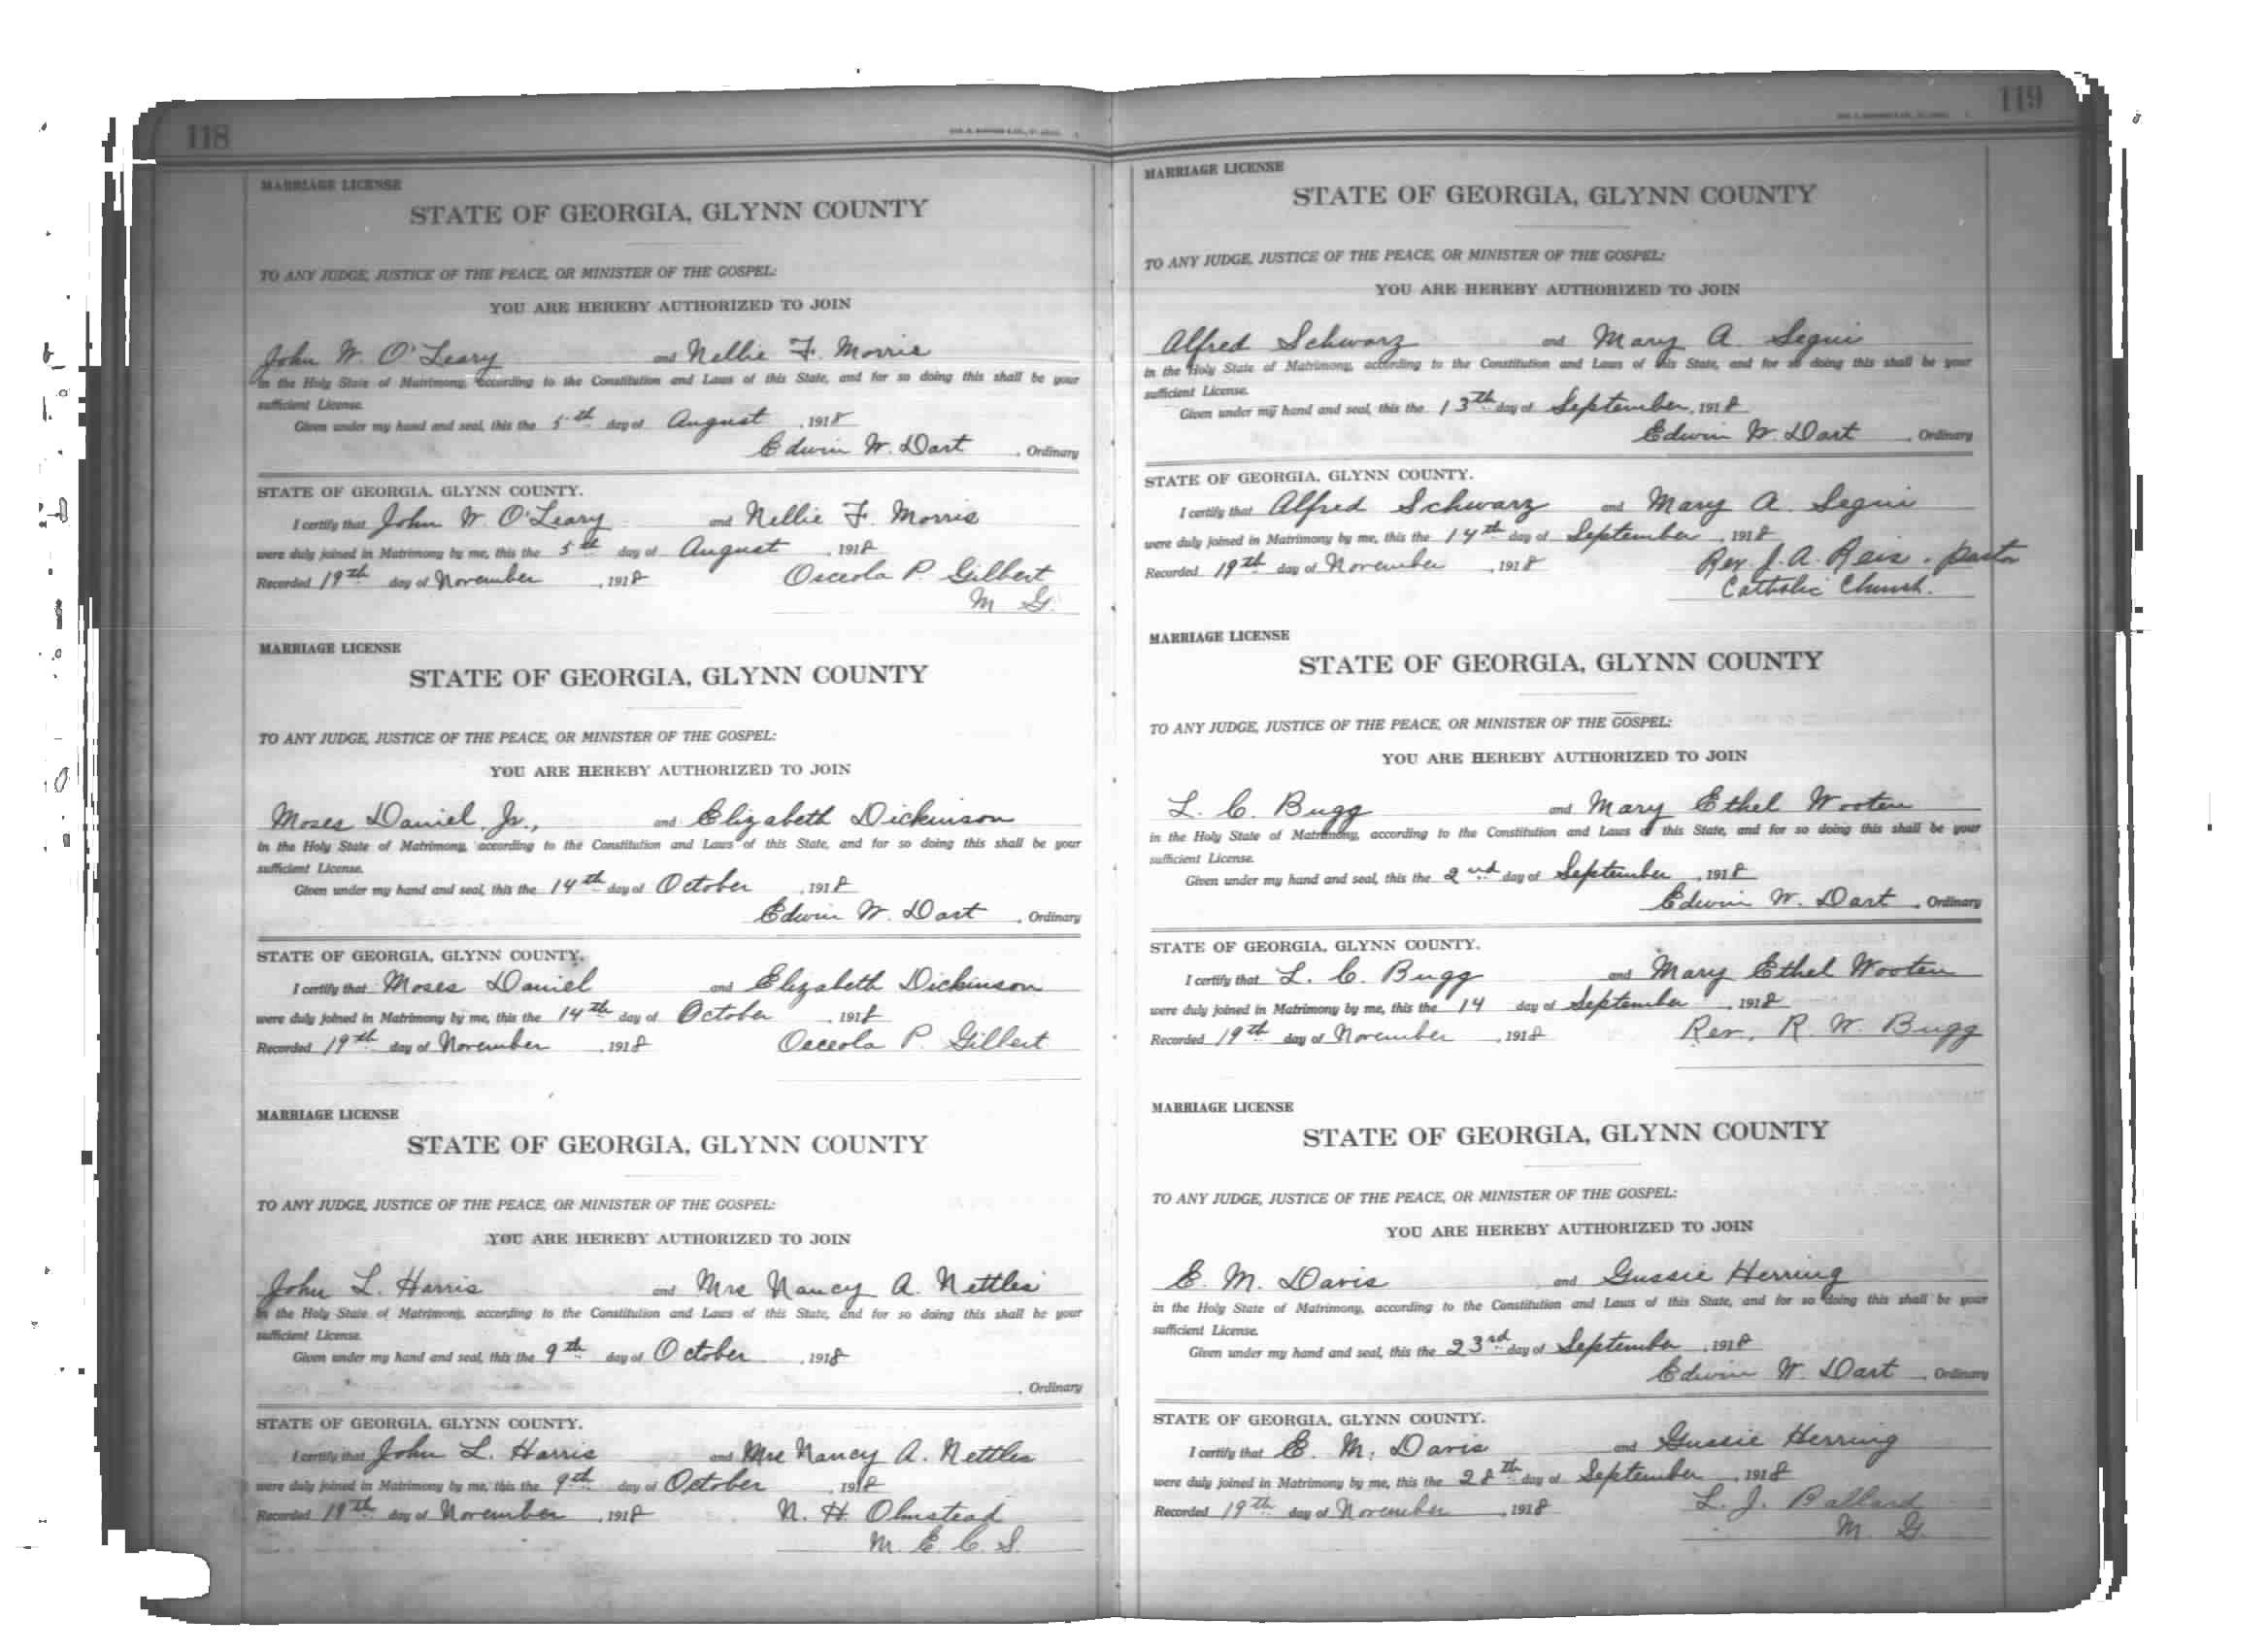 118
MARRIAGE LICENSE
STATE OF GEORGIA, GLYNN COUNTY
TO ANY JUDGE, JUSTICE OF THE PEACE, OR MINISTER OF THE GOSPEL:
YOU ARE HEREBY AUTHORIZED TO JOIN
John W. O'Leary and Nellie F. Morris
in the Holy State of Matrimony, according to the Constitution and Laws of this State, and for so doing this shall be your
sufficient License.
Given under my hand and seal, this the 5th day of August, 1918
Edwin W. Dart, Ordinary
STATE OF GEORGIA, GLYNN COUNTY.
I certify that John W. O'Leary and Nellie F. Morris
were duly joined in Matrimony by me, this the 5th day of August, 1918
Recorded 19th day of November, 1918 Osceola P. Gilbert
M G.
MARRIAGE LICENSE
STATE OF GEORGIA, GLYNN COUNTY
TO ANY JUDGE, JUSTICE OF THE PEACE, OR MINISTER OF THE GOSPEL:
YOU ARE HEREBY AUTHORIZED TO JOIN
Moses Daniel Jr., and Elizabeth Dickinson
in the Holy State of Matrimony, according to the Constitution and Laws of this State, and for so doing this shall be your
sufficient License.
Given under my hand and seal, this the 14th day of October, 1918
Edwin W. Dart, Ordinary
STATE OF GEORGIA, GLYNN COUNTY.
I certify that Moses Daniel and Elizabeth Dickinson
were duly joined in Matrimony by me, this the 14th day of October, 1918
Recorded 19th day of November, 1918 Osceola P. Gilbert
MARRIAGE LICENSE
STATE OF GEORGIA, GLYNN COUNTY
TO ANY JUDGE, JUSTICE OF THE PEACE, OR MINISTER OF THE GOSPEL:
YOU ARE HEREBY AUTHORIZED TO JOIN
John L. Harris and Mrs Nancy A. Nettles
in the Holy State of Matrimony, according to the Constitution and Laws of this State, and for so doing this shall be your
sufficient License.
Given under my hand and seal, this the 9th day of October, 1918
, Ordinary
STATE OF GEORGIA, GLYNN COUNTY.
I certify that John L. Harris and Mrs Nancy A. Nettles
were duly joined in Matrimony by me, this the 9th day of October, 1918
Recorded 19th day of November, 1918 N. H. Olmstead
M. E. C. S.
119
MARRIAGE LICENSE
STATE OF GEORGIA, GLYNN COUNTY
TO ANY JUDGE, JUSTICE OF THE PEACE, OR MINISTER OF THE GOSPEL:
YOU ARE HEREBY AUTHORIZED TO JOIN
Alfred Schwarz and Mary A. Segui
in the Holy State of Matrimony, according to the Constitution and Laws of this State, and for so doing this shall be your
sufficient License.
Given under my hand and seal, this the 13th day of September, 1918
Edwin W. Dart, Ordinary
STATE OF GEORGIA, GLYNN COUNTY.
I certify that Alfred Schwarz and Mary A. Segui
were duly joined in Matrimony by me, this the 14th day of September, 1918
Recorded 19th day of November, 1918 Rev. J. A. Reis. pastor
Catholic Church.
MARRIAGE LICENSE
STATE OF GEORGIA, GLYNN COUNTY
TO ANY JUDGE, JUSTICE OF THE PEACE, OR MINISTER OF THE GOSPEL:
YOU ARE HEREBY AUTHORIZED TO JOIN
L. C. Bugg and Mary Ethel Wooten
in the Holy State of Matrimony, according to the Constitution and Laws of this State, and for so doing this shall be your
sufficient License.
Given under my hand and seal, this the 2nd day of September, 1918
Edwin W. Dart, Ordinary
STATE OF GEORGIA, GLYNN COUNTY.
I certify that L. C. Bugg and Mary Ethel Wooten
were duly joined in Matrimony by me, this the 14 day of September, 1918
Recorded 19th day of November, 1918 Rev. R. W. Bugg
MARRIAGE LICENSE
STATE OF GEORGIA, GLYNN COUNTY
TO ANY JUDGE, JUSTICE OF THE PEACE, OR MINISTER OF THE GOSPEL:
YOU ARE HEREBY AUTHORIZED TO JOIN
E. M. Davis and Gussie Herring
in the Holy State of Matrimony, according to the Constitution and Laws of this State, and for so doing this shall be your
sufficient License.
Given under my hand and seal, this the 23rd day of September, 1918
Edwin W. Dart, Ordinary
STATE OF GEORGIA, GLYNN COUNTY.
I certify that E. M. Davis and Gussie Herring
were duly joined in Matrimony by me, this the 28th day of September, 1918
Recorded 19th day of November, 1918 L. J. Ballard
M. G.